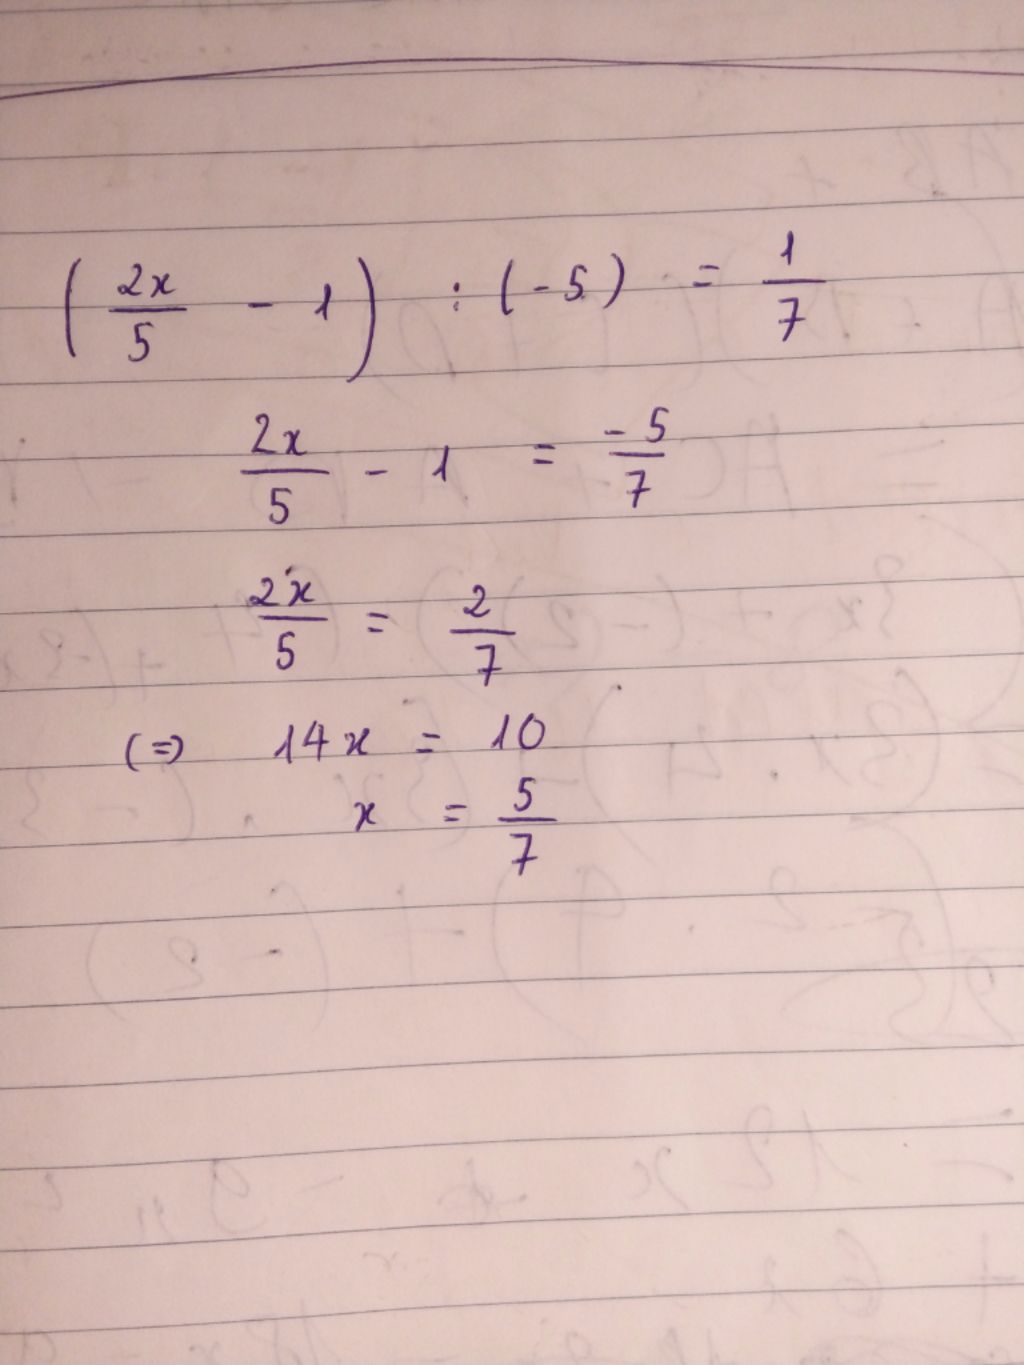 ( 2x/5 - 1 ) : (-5) = 1/7
2x/5 - 1 = -5/7
2x/5 = 2/7
(=) 14x = 10
x = 5/7